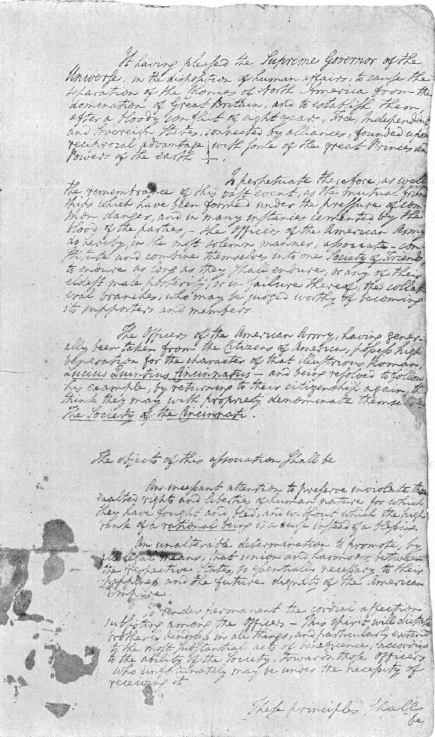 It having pleased the Supreme Governor of the
Universe, in the disposition of human affairs, to cause the
separation of the Colonies of North America from the
domination of Great Britain, and to establish them
after a bloody conflict of eight years, Free, Independent
and Sovereign States, connected by alliances, founded upon
reciprocal advantage, with some of the great Princes and
Powers of the Earth
To perpetuate therefore, as well
the remembrance of this vast event, as the mutual friend
ships which have been formed under the pressure of com
mon danger, and in many instances cemented by the
blood of the parties, – the Officers of the American Army
do hereby, in the most solemn manner, associate – con
stitute and combine themselves into one Society of Friends
to endure as long as they shall endure, or any of their
eldest male posterity, or in failure thereof, the collat
eral branches, who may be judged worthy of becoming
its supporters and members.
The Officers of the American Army, having gener
ally been taken from the Citizens of America, possess high
veneration for the character of that illustrious Roman
Lucius Quintius Cincinnatus – and being resolved to follow
his example, by returning to their citizenship again, they
think they may with propriety denominate themselves
The Society of the Cincinnati.
The objects of this association shall be
An incessant attention to preserve inviolate those
exalted rights and liberties of human nature for which
they have fought and bled, and without which the high
rank of a rational being is a curse instead of a blessing.
An unalterable determination to promote, by
means, that union and harmony between
the respective States, so essential necessary to their
happiness and the future dignity of the American
Empire.
To render permanent the cordial affection
subsisting among the Officers – This spirit will dictate
brotherly kindness in all things, and particularly extend
to the most substantial acts of beneficence, according
to the ability of the Society, towards those Officers
who unfortunately may be under the necessity of
receiving it.
These principles Shall
be